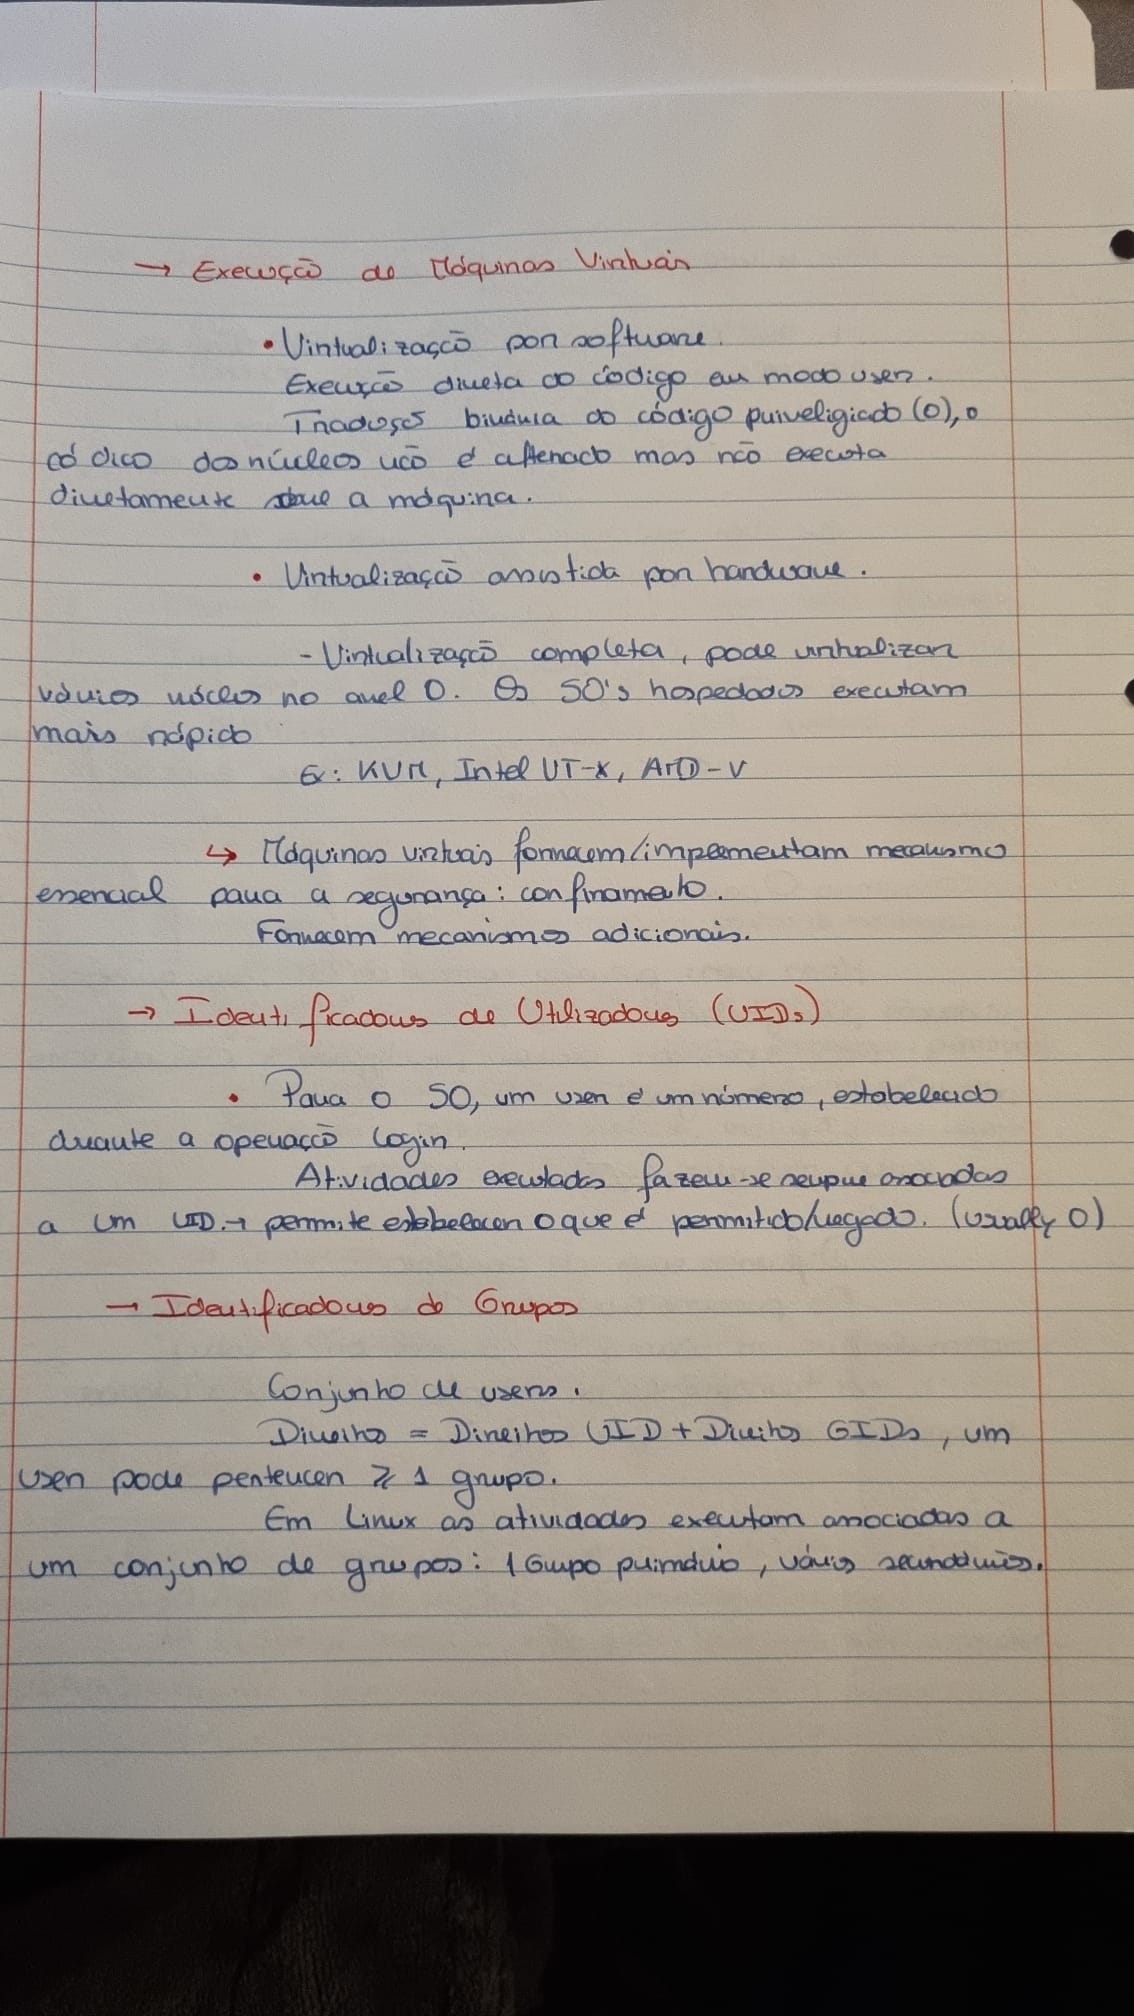 → Execução de Máquinas Virtuais
• Virtualização por software.
Execução direta do código em modo user.
Tradução binária do código priveligiado (0), o
código dos núcleos não é alterado mas não executa
diretamente sobre a máquina.
• Virtualização assistida por hardware.
- Virtualização completa, pode virtualizar
vários núcleos no anel 0. Os SO's hospedados executam
mais rápido
Ex: KVM, Intel VT-x, AMD-V
↳ Máquinas virtuais fornecem/implementam mecanismo
essencial para a segurança: confinamento.
Fornecem mecanismos adicionais.
→ Identificadores de Utilizadores (UIDs)
• Para o SO, um user é um número, estabelecido
durante a operação login.
Atividades executadas fazem-se sempre associadas
a um UID. → permite estabelecer o que é permitido/negado. (usually 0)
→ Identificadores de Grupos
Conjunho de users.
Direitos = Direitos UID + Direitos GIDs, um
user pode pertencer ⩾ 1 grupo.
Em Linux as atividades executam associadas a
um conjunho de grupos: 1 Grupo primário, vários secundários.